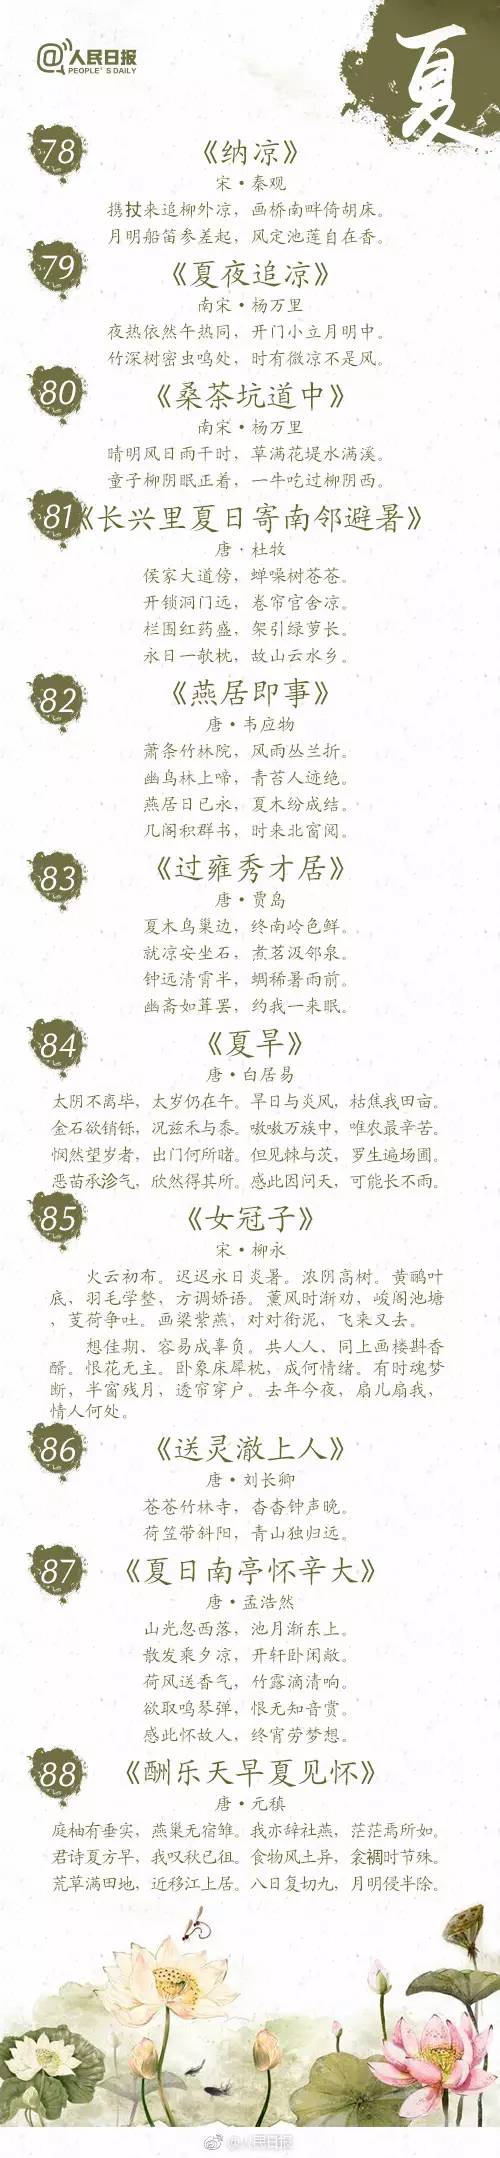 @人民日报
PEOPLE'S DAILY
夏
78
《纳凉》
宋·秦观
携扙来追柳外凉，画桥南畔倚胡床。
月明船笛参差起，风定池莲自在香。
79
《夏夜追凉》
南宋·杨万里
夜热依然午热同，开门小立月明中。
竹深树密虫鸣处，时有微凉不是风。
80
《桑茶坑道中》
南宋·杨万里
晴明风日雨干时，草满花堤水满溪。
童子柳阴眠正着，一牛吃过柳阴西。
81
《长兴里夏日寄南邻避暑》
唐·杜牧
侯家大道傍，蝉噪树苍苍。
开锁洞门远，卷帘官舍凉。
栏围红药盛，架引绿萝长。
永日一欹枕，故山云水乡。
82
《燕居即事》
唐·韦应物
萧条竹林院，风雨丛兰折。
幽鸟林上啼，青苔人迹绝。
燕居日已永，夏木纷成结。
几阁积群书，时来北窗阅。
83
《过雍秀才居》
唐·贾岛
夏木鸟巢边，终南岭色鲜。
就凉安坐石，煮茗汲邻泉。
钟远清霄半，蜩稀暑雨前。
幽斋如葺罢，约我一来眠。
84
《夏旱》
唐·白居易
太阴不离毕，太岁仍在午。旱日与炎风，枯焦我田亩。
金石欲销铄，况兹禾与黍。嗷嗷万族中，唯农最辛苦。
悯然望岁者，出门何所睹。但见棘与茨，罗生遍场圃。
恶苗承沴气，欣然得其所。感此因问天，可能长不雨。
85
《女冠子》
宋·柳永
火云初布。迟迟永日炎暑。浓阴高树。黄鹂叶
底，羽毛学整，方调娇语。薰风时渐劝，峻阁池塘
，芰荷争吐。画梁紫燕，对对衔泥，飞来又去。
想佳期、容易成辜负。共人人、同上画楼斟香
醑。恨花无主。卧象床犀枕，成何情绪。有时魂梦
断，半窗残月，透帘穿户。去年今夜，扇儿扇我，
情人何处。
86
《送灵澈上人》
唐·刘长卿
苍苍竹林寺，杳杳钟声晚。
荷笠带斜阳，青山独归远。
87
《夏日南亭怀辛大》
唐·孟浩然
山光忽西落，池月渐东上。
散发乘夕凉，开轩卧闲敞。
荷风送香气，竹露滴清响。
欲取鸣琴弹，恨无知音赏。
感此怀故人，终宵劳梦想。
88
《酬乐天早夏见怀》
唐·元稹
庭柚有垂实，燕巢无宿雏。我亦辞社燕，茫茫焉所如。
君诗夏方早，我叹秋已徂。食物风土异，衾裯时节殊。
荒草满田地，近移江上居。八日复切九，月明侵半除。
@人民日报